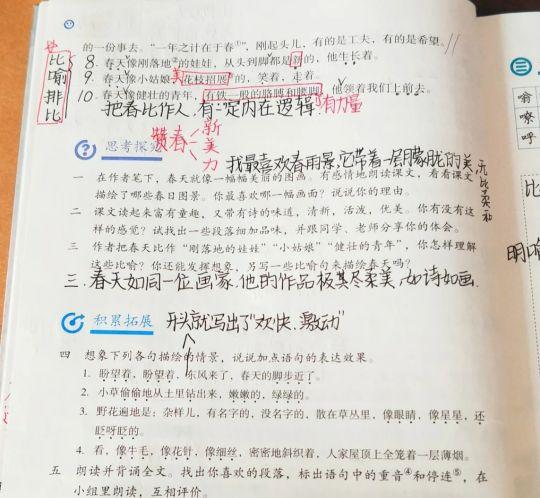 的一份事去。“一年之计在于春①”，刚起头儿，有的是工夫，有的是希望。
比喻排比
8 春天像刚落地②的娃娃，从头到脚都是新的，他生长着。
9. 春天像小姑娘，花枝招展③的，笑着，走着。
美
10. 春天像健壮的青年，有铁一般的胳膊和腰脚，他领着我们上前去。
把春比作人，有一定内在逻辑
有力量
赞春
新
美
力
思考探究
我最喜欢春雨景，它带着一层朦胧的美
无比柔和
一 在作者笔下，春天就像一幅幅美丽的图画。有感情地朗读课文，看看课文
描绘了哪些春日图景。你最喜欢哪一幅画面？说说你的理由。
二 课文读起来富有童趣，又带有诗的味道，清新，活泼，优美。你有没有这
样的感觉？试找出一些段落细加品味，并跟同学、老师分享你的体会。
三 作者把春天比作“刚落地的娃娃”“小姑娘”“健壮的青年”，你怎样理解
这些比喻？你还能发挥想象，另写一些比喻句来描绘春天吗？
三.春天如同一位画家，他的作品极其尽柔美，如诗如画.
积累拓展
开头就写出了“欢快、激动”
四 想象下列各句描绘的情景，说说加点语句的表达效果。
1. 盼望着，盼望着，东风来了，春天的脚步近了。
2. 小草偷偷地从土里钻出来，嫩嫩的，绿绿的。
3. 野花遍地是：杂样儿，有名字的，没名字的，散在草丛里，像眼睛，像星星，还
眨呀眨的。
4. 看，像牛毛，像花针，像细丝，密密地斜织着，人家屋顶上全笼着一层薄烟。
五 朗读并背诵全文。找出你喜欢的段落，标出语句中的重音④和停连⑤，在
小组里朗读，互相评价。
三
喻
嘹
呼
比
明喻